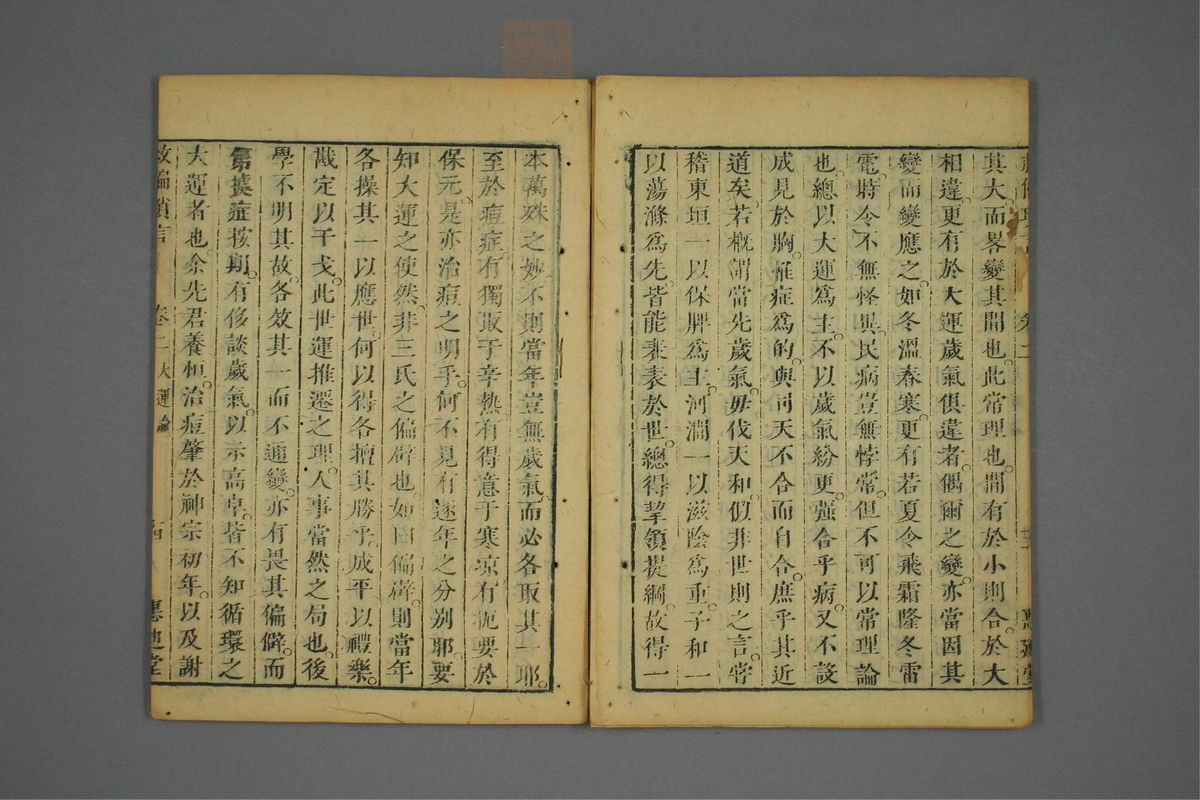 其大。而畧變其間也。此常理也。間有於小則合。於大
相違。更有於大運歲氣俱違者。偶爾之變。亦當因其
變而變應之。如冬溫春寒。更有若夏令飛霜隆冬雷
電。時令不無怪異。民病豈無悖常。但不可以常理論
也。總以大運爲主。不以歲氣紛更。強合乎病。又不設
成見於胸。惟症爲的。與司天不合而自合。庶乎其近
道矣。若概謂當先歲氣。毋伐天和。似非世則之言。嘗
稽東垣一以保脾爲主。河澗一以滋陰爲重。子和一
以蕩滌爲先。皆能表表於世。總得挈領提綱。故得一
本萬殊之妙。不則當年豈無歲氣。而必各取其一耶。
至於痘症。有獨取于辛熱有得意于寒凉有扼要於
保元。是亦治痘之明乎。何不見有逐年之分別耶。要
知大運之使然。非三氏之偏僻也。如曰偏僻。則當年
各操其一以應世。何以得各擅其勝乎。成平以禮樂。
戡定以干戈。此世運推遷之理。人事當然之局也。後
學不明其故。各效其一而不通變。亦有畏其偏僻。而
第據症按期。有侈談歲氣。以示高卓。皆不知循環之
大運者也余先君養恒。治痘肇於神宗初年。以及謝
救偏瑣言 卷二 大運論 十四 惠迪堂